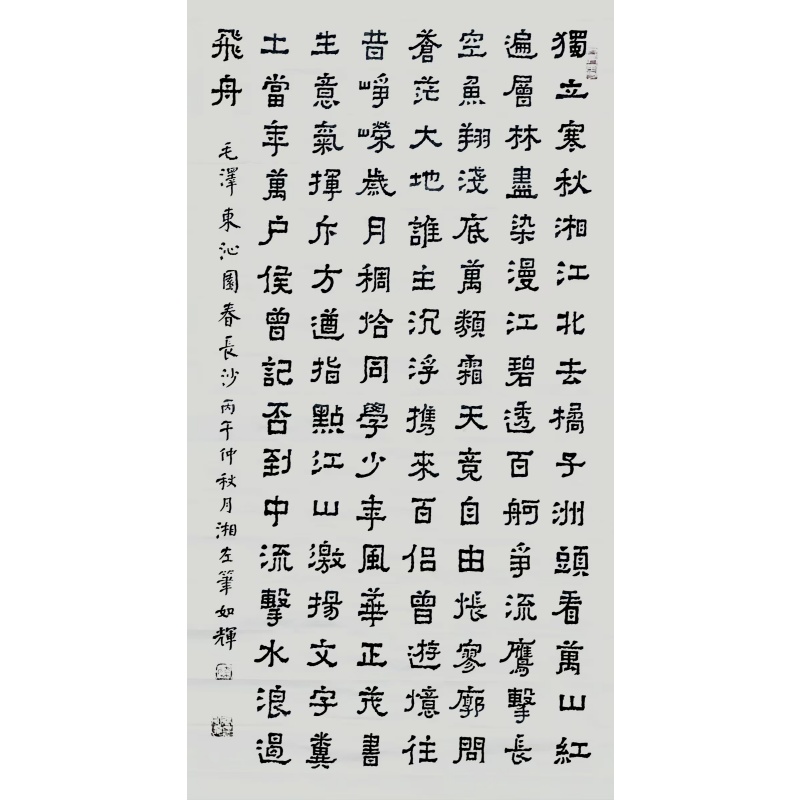 獨立寒秋湘江北去橘子洲頭看萬山紅
遍層林盡染漫江碧透百舸爭流鷹擊長
空魚翔淺底萬類霜天竟自由悵寥廓問
蒼茫大地誰主沉浮携來百侶曾遊憶往
昔崢嶸歲月稠恰同學少年風華正茂書
生意氣揮斥方遒指點江山激揚文字糞
土當年萬户侯曾記否到中流擊水浪遏
飛舟 毛澤東沁園春長沙丙午仲秋月湘左筆如輝